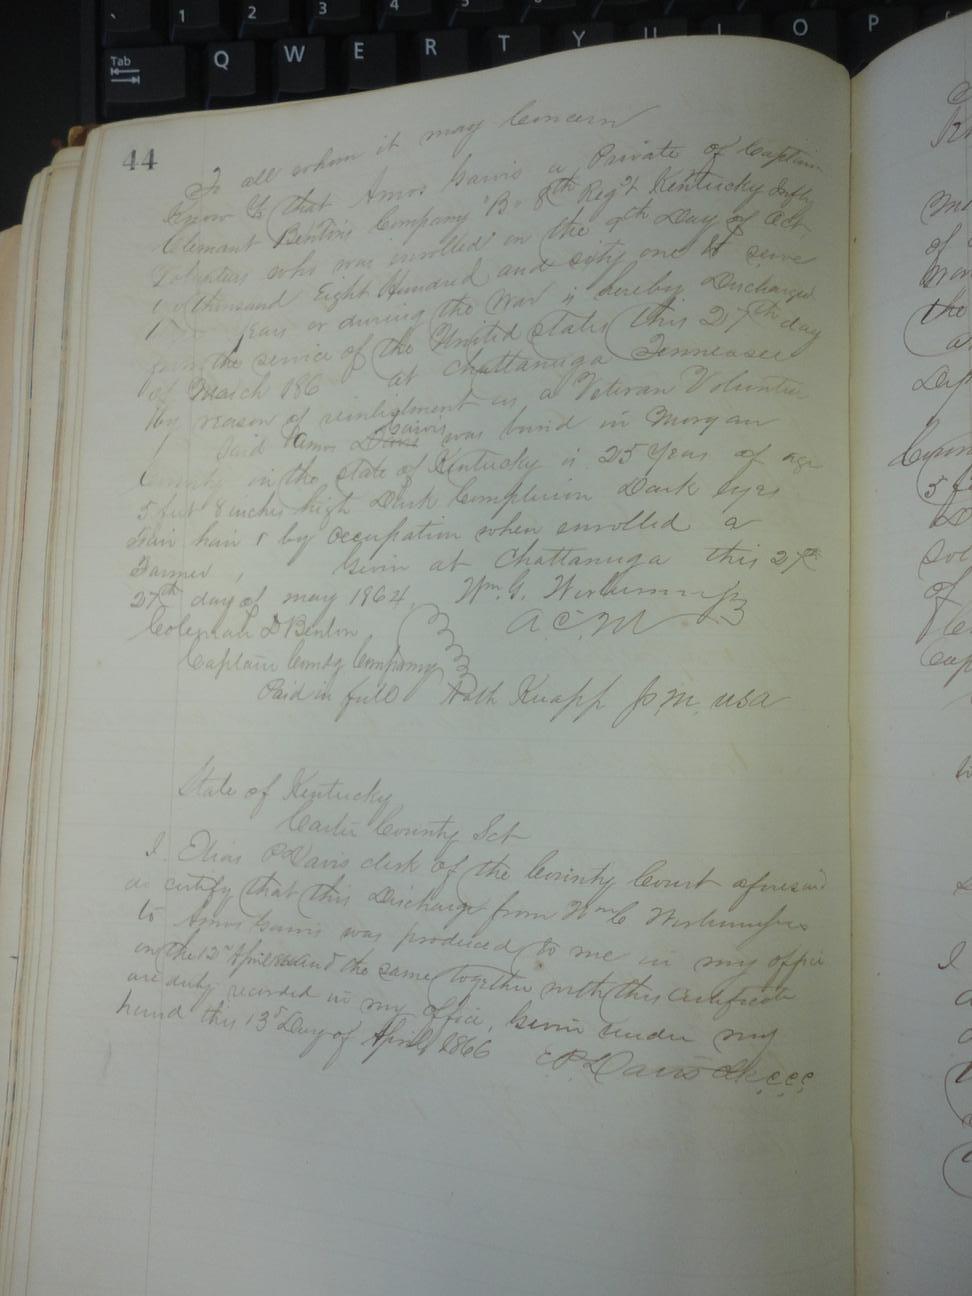 1 2 3 4 5 6 7 8 9
Tab Q W E R T Y U I O P
44
To all whom it may Concern
Know Ye that Amos Garvis a Private of Captain
Clemant Bentons Company "B" 8th Regt Kentucky Infty
Voluntiers who was enrolled on the 9th Day of Oct
thousand Eight Hundred and sixty one to serve
years or during the War is hereby Discharged
from the service of the United States this 27th day
of March 186 at Chattanuga Tennessee
by reason of reinlistment as a Veteran Volunteer
Said Amos Davis Garvis was bornd in Morgan
County in the state of Kentucky is 25 Years of age
5 feet 8 inches high Dark Complexion Dark Eyes
hair & by occupation when enrolled a
Farmer, Givin at Chattanuga this 27th
27th day of may 1864 Wm.
Colemah D Benton A C M
Captain Comdg Company B
Paid in full Knapp P M. USA
State of Kentucky
Carter County Sct
I Elias P Davis clerk of the County Court aforesaid
do certify that this Discharge from Wm C
to Amos Garvis was produced to me in my office
on the 12" April and the same together with this certificate
are duly recorded in my office, Givin under my
hand this 13" Day of April 1866 E P Davis Clk C C C